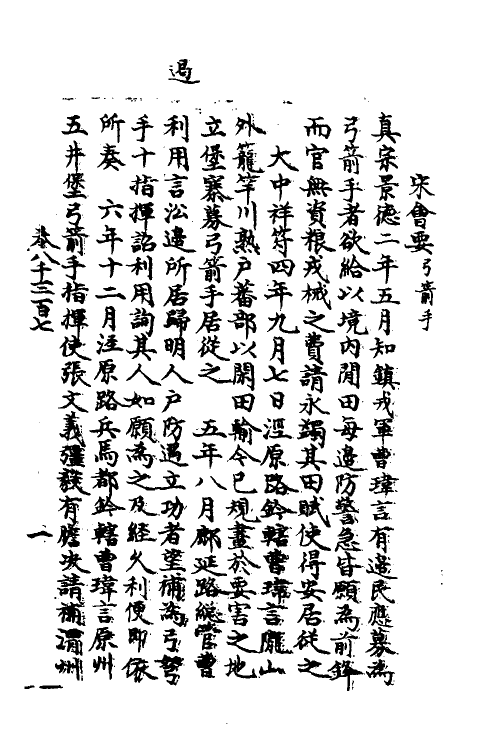 宋會要弓箭手
真宗景德二年五月知鎮戎軍曹瑋言有邊民應募為
弓箭手者欲給以境內閒田每邊防警急皆願為前鋒
而官無資粮戎械之費請永蠲其田賦使得安居從之
大中祥符四年九月七日涇原路鈐轄曹瑋言隴山
外籠竿川熟戶蕃部以閑田輸令已規畫於要害之地
立堡寨募弓箭手居從之　五年八月鄜延路總管曹
利用言沿邊所居歸明人戶防遏立功者望補為弓弩
手十指揮詔利用詢其人如願為之及經久利便即依
所奏　六年十二月涇原路兵馬都鈐轄曹瑋言原州
五井堡弓箭手指揮使張文義彊毅有膽决請補渭州
卷八千三百七
一
遏